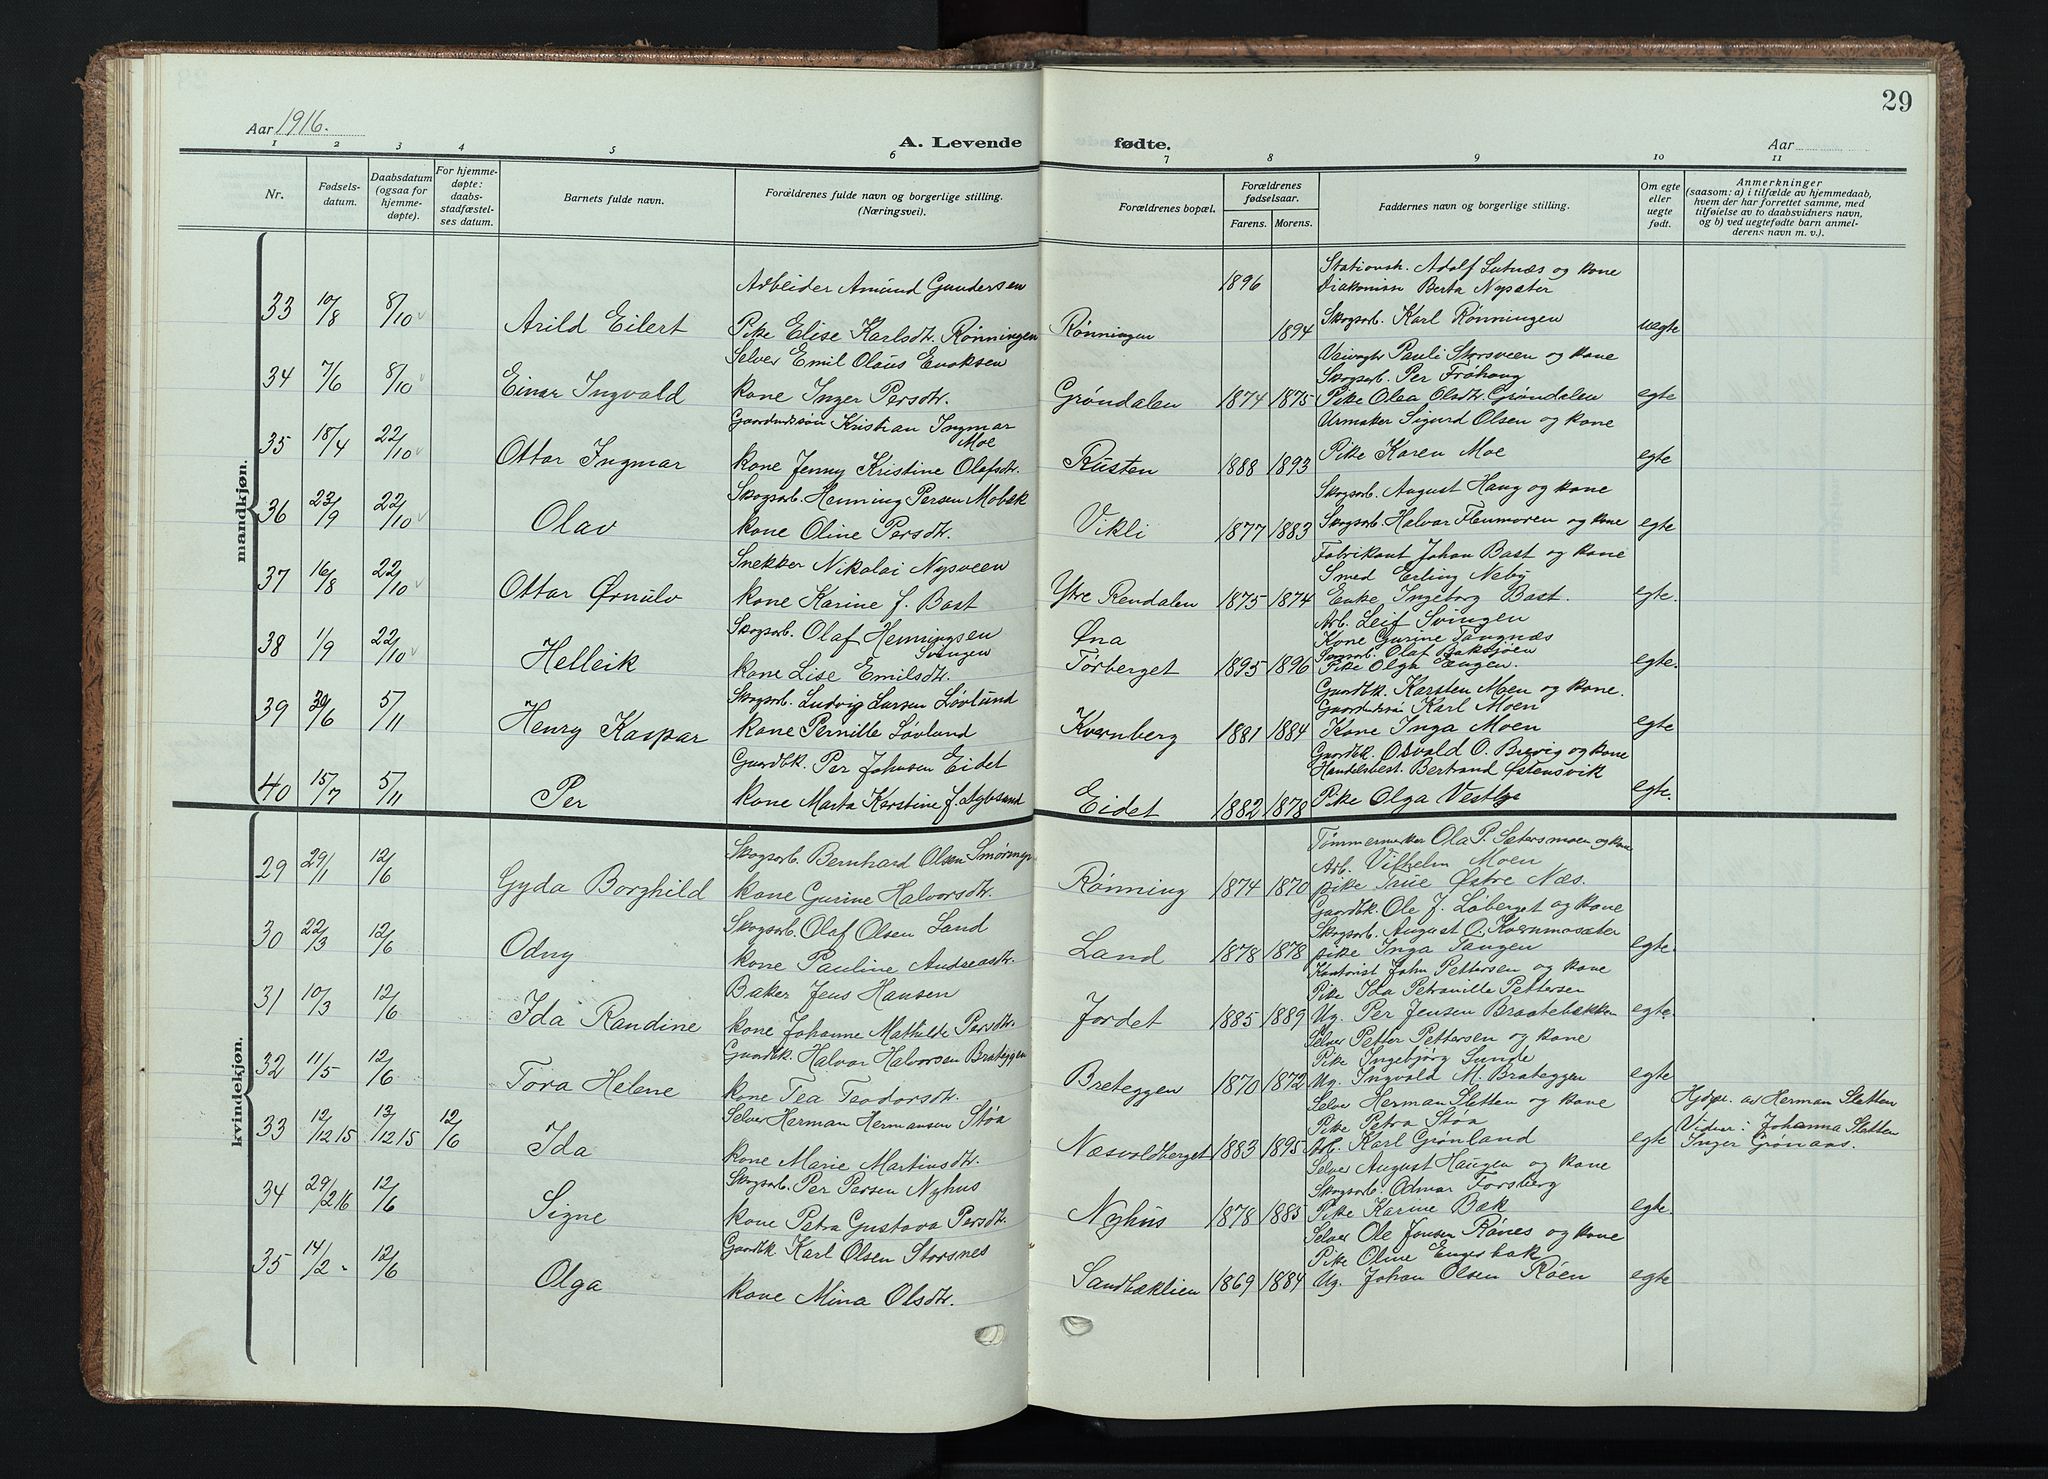 29
Aar 1916.
A. Levende fødte.
Aar
1 2 3 4 5 6 7 8 9 10 11
Nr.
Fødsels-
datum.
Daabsdatum
(ogsaa for
hjemme-
døpte).
For hjemme-
døpte:
daabs-
stadfæstel-
ses datum.
Barnets fulde navn.
Forældrenes fulde navn og borgerlige stilling.
(Næringsvei).
Forældrenes bopæl.
Forældrenes
fødselsaar.
Farens. Morens.
Faddernes navn og borgerlige stilling.
Om egte
eller
uegte
født.
Anmerkninger
(saasom: a) i tilfælde av hjemmedaab,
hvem der har forrettet samme, med
tilføielse av to daabsvidners navn,
og b) ved uegtefødte barn anmel-
derens navn m. v.).
mandkjøn.
Arbeider Amund Gundersen 1896 Stationsk. Adolf Lutnæs og kone
Diakonisse Berta Nysæter
33 10/8 8/10 Arild Eilert Pike Elise Karlsdtr. Rønningen Rønningen 1894 Skogsarb. Karl Rønningen uegte
Selver Emil Olaus Enoksen Veivogter Pauli Storsveen og kone
Skogsarb. Per Frøhaug
34 7/6 8/10 Einar Ingvald kone Inger Persdtr. Grøndalen 1874 1875 Pike Olea Olsdtr. Grøndalen egte
Gaardmandssøn Kristian Ingmar Moe Urmaker Sigurd Olsen og kone
35 18/4 22/10 Ottar Ingmar kone Jenny Kristine Olafsdtr. Rusten 1888 1893 Pike Karen Moe egte
Skogsarb. Henning Persen Mobæk Skogsarb. August Haug og kone
36 23/9 22/10 Olav kone Oline Persdtr. Vikli 1877 1883 Skogsarb. Halvar Flenmoren og kone egte
Snekker Nikolai Nysveen Fabrikant Johan Bast og kone
Smed Erling Neby
37 16/8 22/10 Ottar Ørnulv kone Karine f. Bast Ytre Rendalen 1875 1874 Enke Ingeborg Bast. egte.
Skogsarb. Olaf Henningsen Svingen Øna Arb. Leif Svingen
Kone Gurine Tangnæs
Skogsarb. Olaf Baksjøen
38 1/9 22/10 Helleik kone Lise Emilsdtr. Tørberget 1895 1896 Pike Olga Engen. egte.
Skogsarb. Ludvig Larsen Løvlund Gaardbk. Karsten Moen og kone.
Karl Moen
39 30/6 5/11 Henry Kaspar kone Pernille Løvlund Kvernberg 1881 1884 Kone Inga Moen egte
Gaardbk. Per Johnsen Eidet Gaardbk. Osvald O. Brevig og kone
Handelsbest. Bertrand Østensvik
40 15/7 5/11 Per kone Marta Kerstine f. Nybsand Eidet 1882 1878 Pike Olga Vestby egte.
kvindekjøn.
Skogsarb. Bernhard Olsen Tømmermerker Ola P. Sætersmoen og kone
Arb. Vilhelm Moen
29 29/1 12/6 Gyda Borghild kone Gurine Halvorsdtr. Rønning 1874 1870 pike True Østre Næs.
Skogsarb. Olaf Olsen Land Gaardbk. Ole J. Løberget og kone
Skogsarb. August O. Kvernmosæter
30 22/3 12/6 Odny kone Pauline Andreasdtr. Land 1878 1878 pike Inga Tangen egte.
Baker Jens Hansen Kontorist John Pettersen og kone
Pike Ida Petronille Pettersen
31 10/3 12/6 Ida Randine kone Johanne Mathilde Persdtr. Jordet 1885 1889 Ug. Per Jensen Braatebækken egte.
Gaardbk. Halvor Halvorsen Brateggen Selver Petter Pettersen og kone
Pike Ingebjørg Sunde
32 11/5 12/6 Tora Helene kone Tea Teodorsdtr. Breteggen 1870 1872 Ug. Ingvald M. Brateggen egte
Selver Herman Hermansen Støa Selver Herman Sletten og kone Hjdøpt. av Herman Sletten
Pike Petra Støa Vidner: Johanna Sletten
33 12/12 15 13/12 15 12/6 Ida kone Marie Martinsdtr. Næsvoldberget 1883 1895 Arb. Karl Grønland egte Inger Grønaas.
Skogsarb. Per Persen Nyhus Selver August Haugen og kone
Skogsarb. Odmar Forsberg
34 29/2 16 12/6 Signe kone Petra Gustava Persdtr. Nyhus 1878 1885 Pike Karine Bæk egte.
Gaardbk Karl Olsen Storsnes Selver Ole Jonsen Rønes og kone
Pike Oline Engesbak
35 14/2 - 12/6 Olga kone Mina Olsdtr. Sandbaklien 1869 1884 Ug. Johan Olsen Røen egte